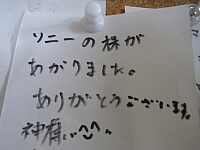 ソニーの株が
あがりました。
ありがとうございます。
神様...^^